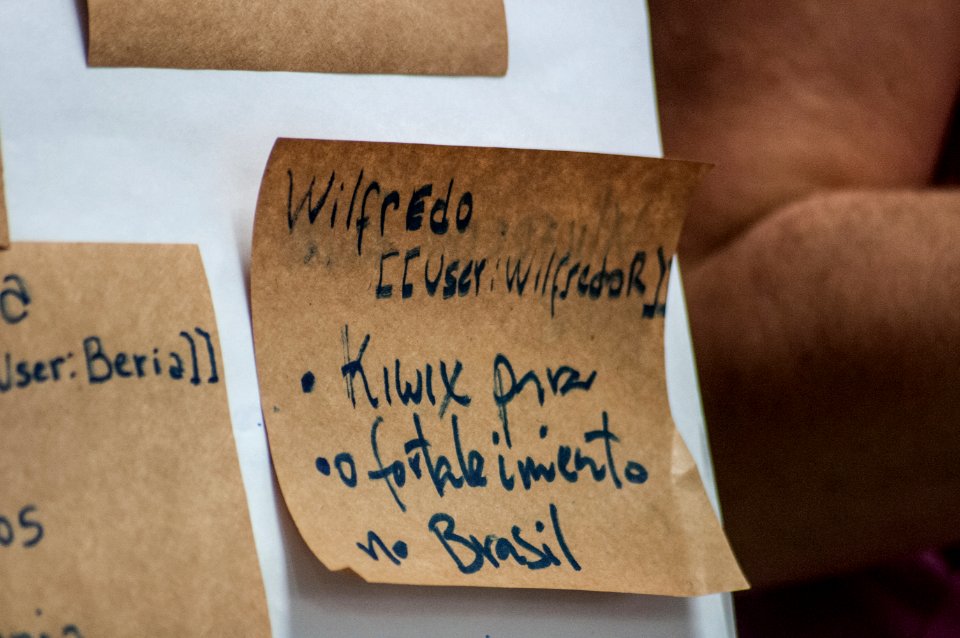 WilfrEdo
[[User:WilfredoR]]
• Kiwix para
• o fortaleimiento
no Brasil
a
User:Beria]]
os